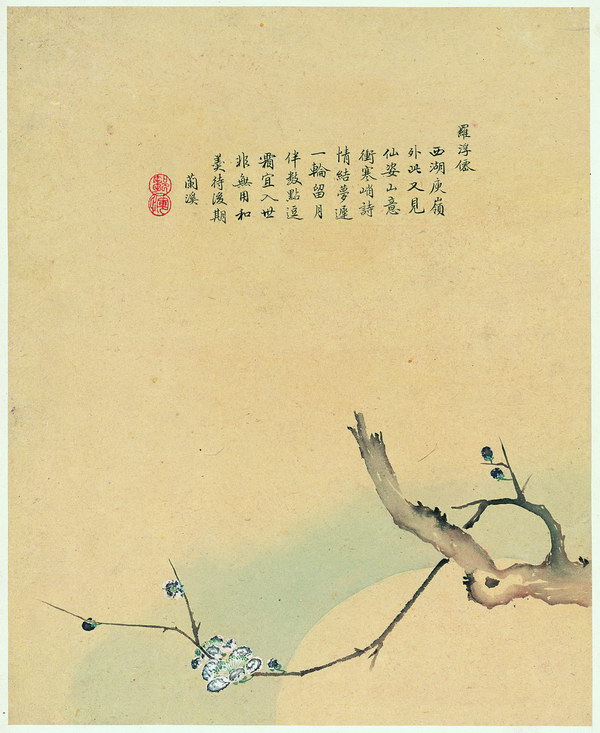 羅浮僊
西湖庾嶺
外此又見
仙姿山意
衝寒峭詩
情結夢遲
一輪留月
伴數點逗
霜宜入世
非無用和
羹待後期
蘭溪